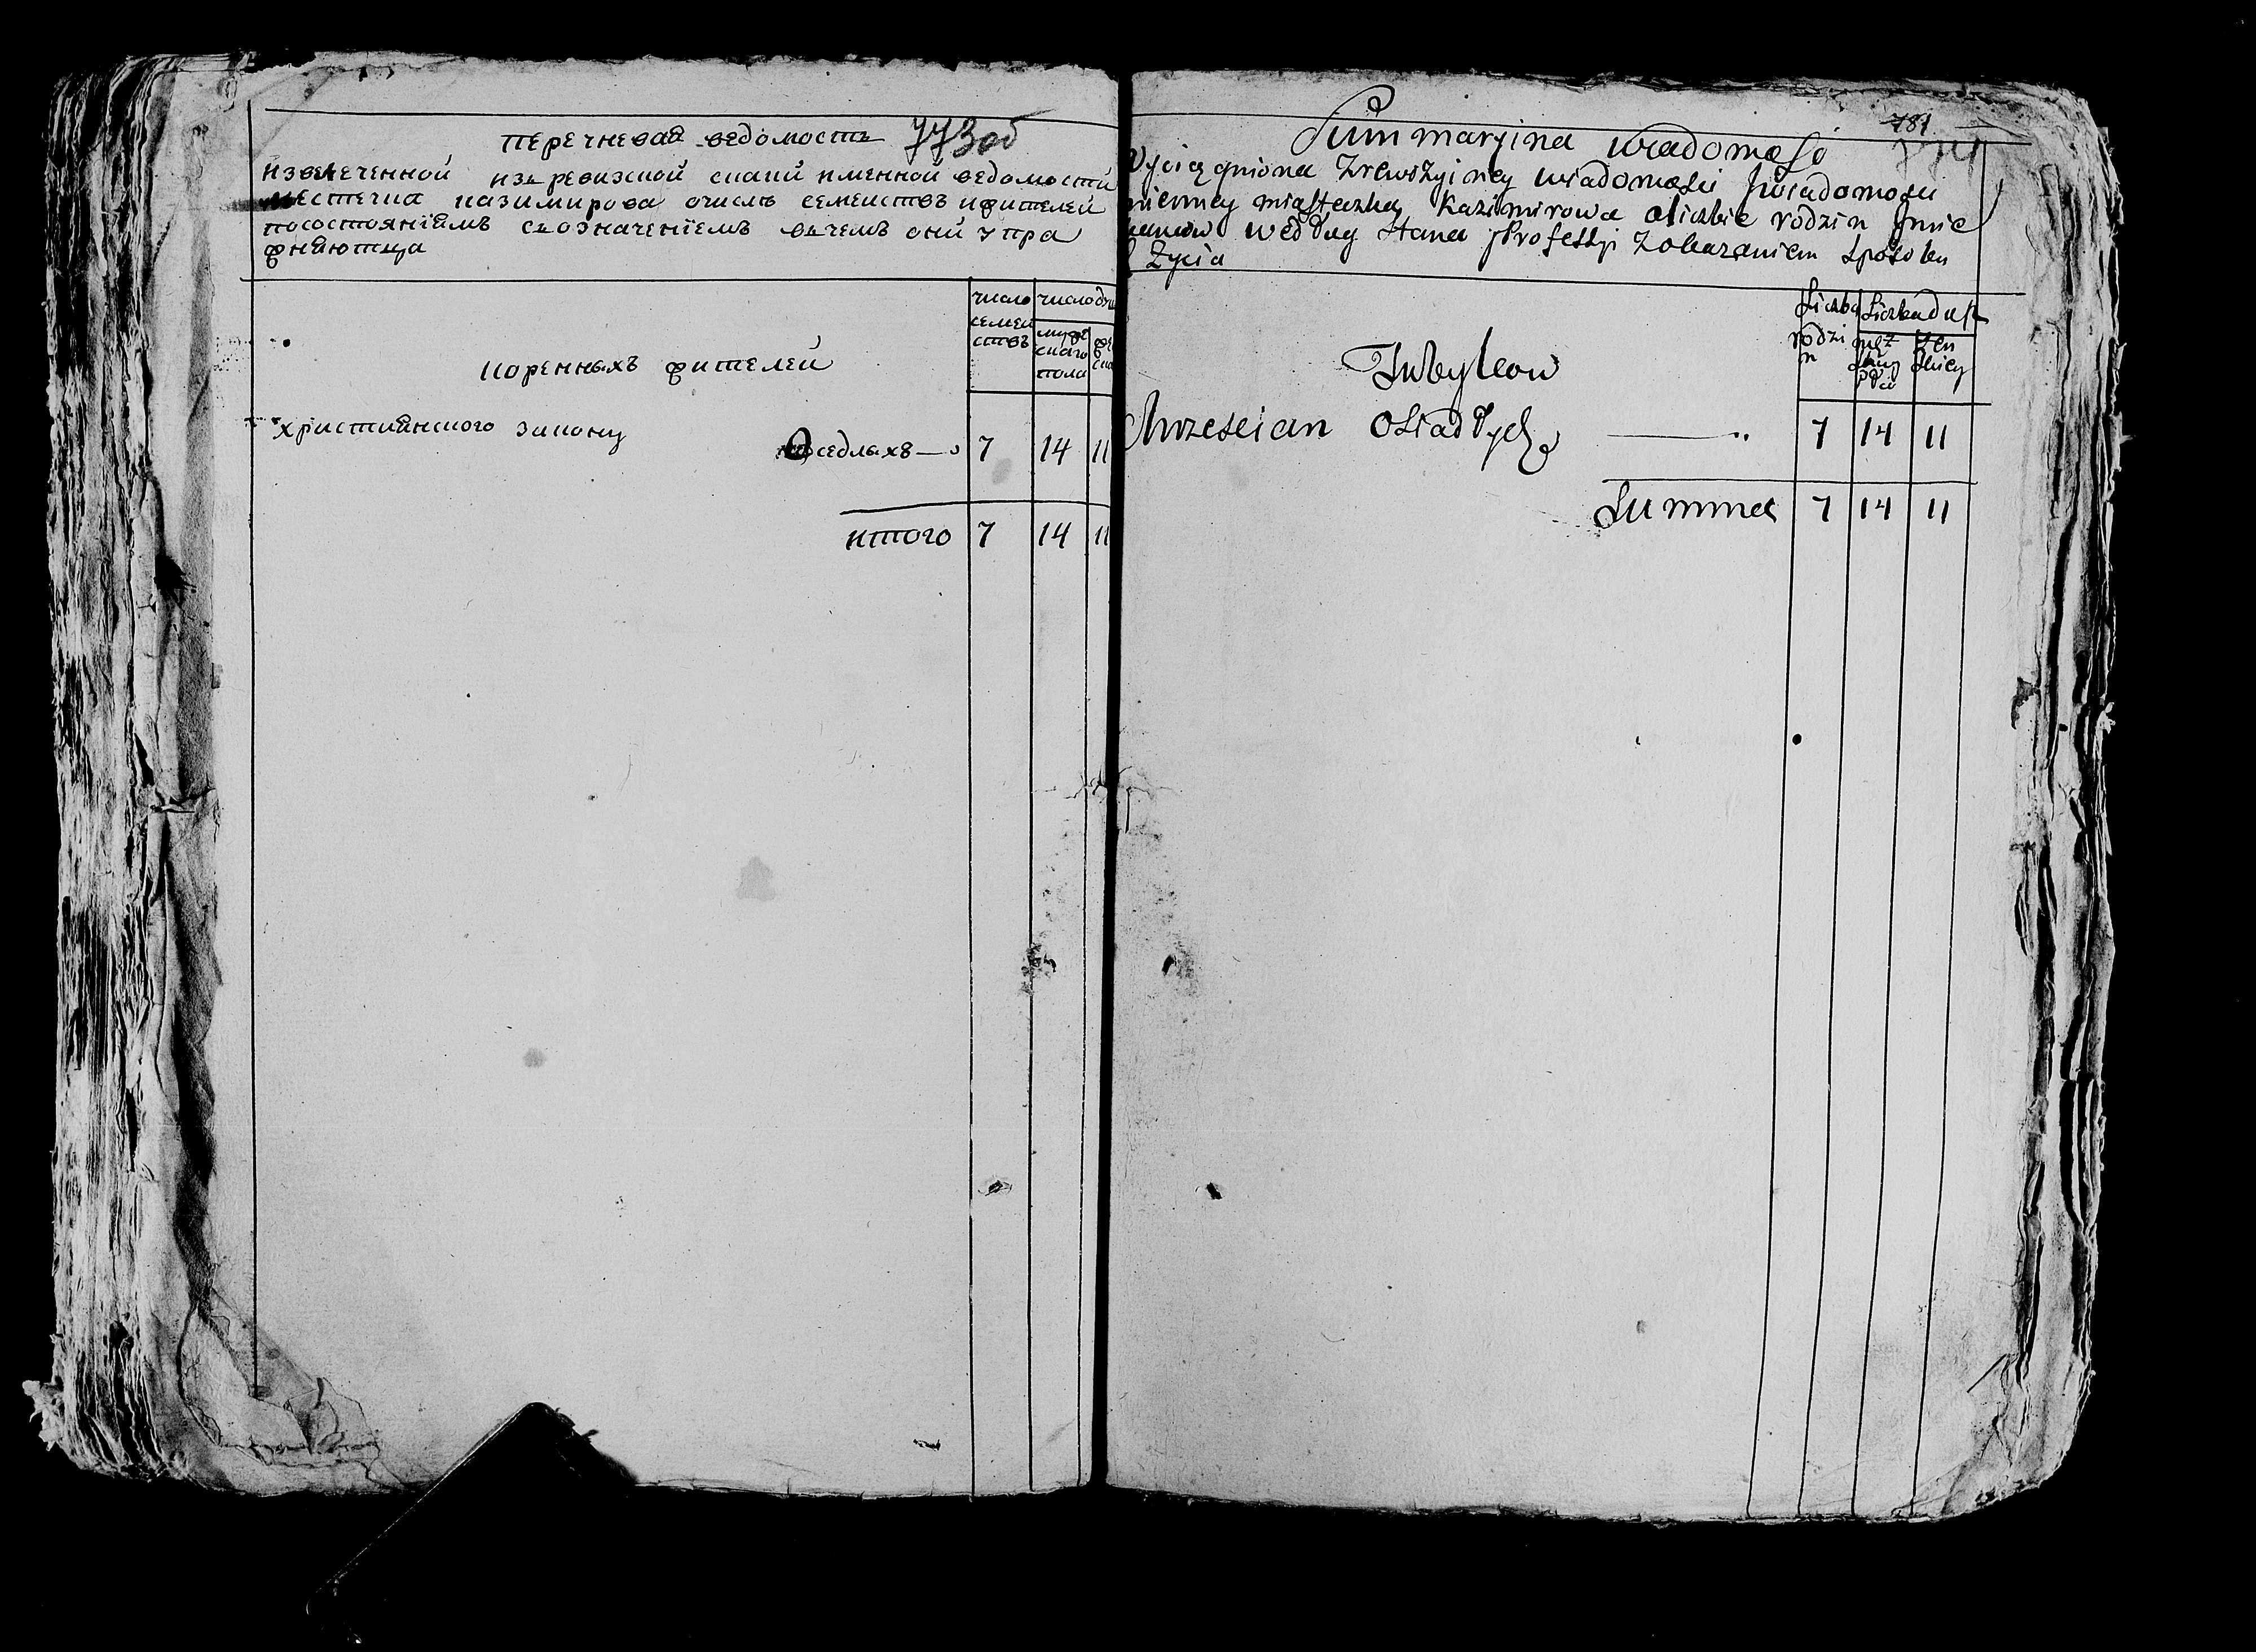 перечневая ведомость 773об
извлеченной изъ ревизской скаски именной ведомости
местечка казимирова очисле семействъ ижителей
посостояніямъ съозначеніемъ вчемъ они упра
жняютца
число семей ствъ
число душ
мужескаго пола
коренныхъ жителей
христианского закону
оседлыхъ 7 14 11
итого 7 14 11
781
Summaryina wiadomość
Wyciągniona Zrewizyiney wiadomości
miasteczka Kazimirowa oliczbie rodzin
według Stanu Professyi Zokazaniem Sposobu
Życia
Liczba rodzin
Liczba dusz
męzkiey płci
żenskiey
Tubylcow
Chrzescian Osiadłych 7 14 11
Summa 7 14 11